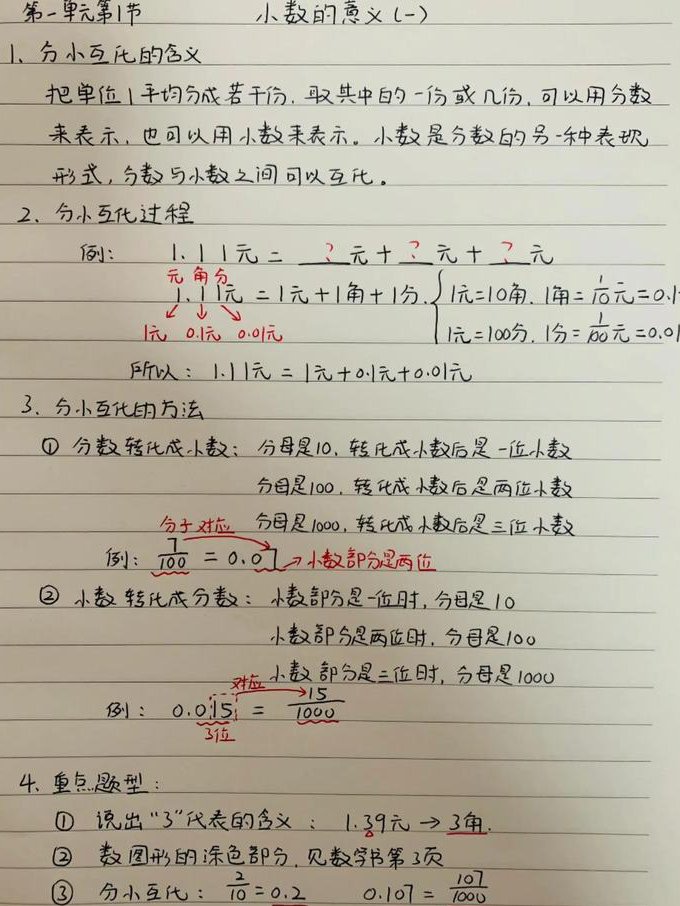 第一单元第1节 小数的意义(一)
1、分小互化的含义
把单位1平均分成若干份,取其中的一份或几份,可以用分数
来表示,也可以用小数来表示。小数是分数的另一种表现
形式,分数与小数之间可以互化。
2、分小互化过程
例: 1.11元 = ?元 + ?元 + ?元
元 角 分
1.11元 = 1元+1角+1分. { 1元=10角、1角=1/10元=0.1
1元 0.1元 0.01元 1元=100分、1分=1/100元=0.01
所以: 1.11元 = 1元+0.1元+0.01元
3、分小互化的方法
① 分数转化成小数: 分母是10、转化成小数后是一位小数
分母是100、转化成小数后是两位小数
分母是1000、转化成小数后是三位小数
分子对应
例: 7/100 = 0.07 → 小数部分是两位
② 小数转化成分数: 小数部分是一位时,分母是10
小数部分是两位时,分母是100
小数部分是三位时,分母是1000
对应
例: 0.015 = 15/1000
3位
4、重点题型:
① 说出“3”代表的含义: 1.39元 → 3角.
② 数图形的涂色部分,见数学书第3页
③ 分小互化: 2/10=0.2 0.107 = 107/1000